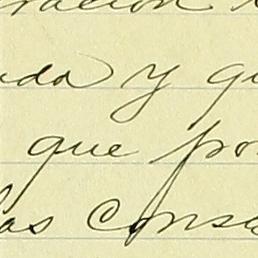 ración
da y qu
que por
las conse